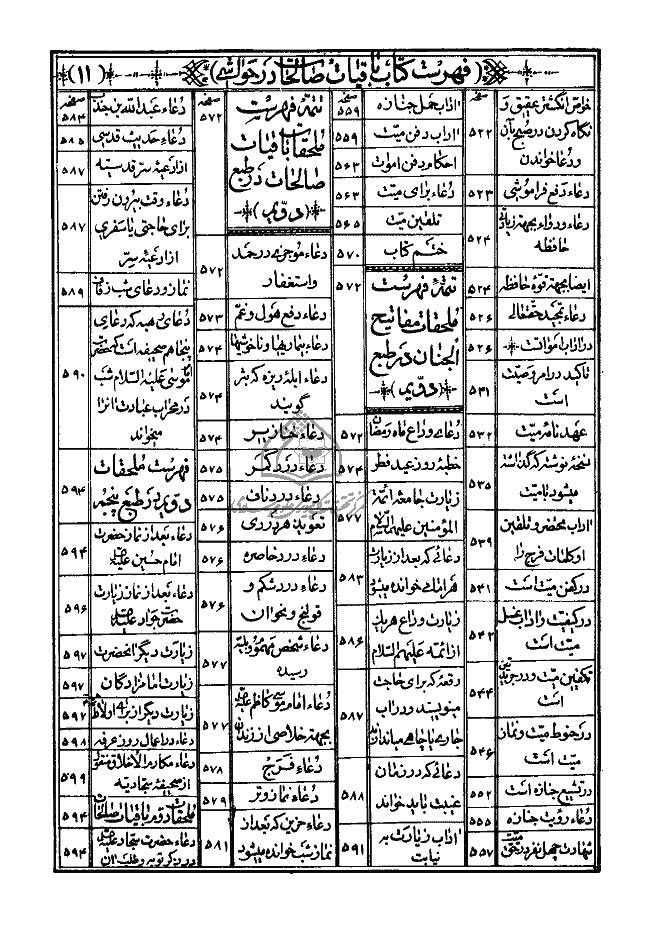 (فهرست کتاب باقیات صالحات در حواشی)
(۱۱)
خواص انگشتر عقیق و
نگاه کردن در صبح بآن
و دعا خواندن
۵۲۲
دعاء دفع فراموشی
۵۲۳
دعاء و دواء بجهته زیادتی
حافظه
۵۲۴
ایضا بجهته قوة حافظه
۵۲۴
دعاء تمجید حقتعالی
۵۲۶
در اداب اموات
۵۲۶
تاکید در امر وصیت
است
۵۳۱
عهدنامه میت
۵۳۲
نسخه نوشته که گذاشته
میشود با میت
۵۳۵
اداب محضر و تلقین
او کلمات فرج را
۵۳۹
در کفن میت است
۵۴۱
در کیفیت و اداب غسل
میت است
۵۴۲
تکفین میت و دو جریدتین
است
۵۴۴
در حنوط میت و نماز
میت است
۵۴۶
در تشیع جنازه است
۵۵۲
دعاء رؤیت جنازه
۵۵۵
شهادت چهل نفر در حق میت
۵۵۷
صفحه
اداب حمل جنازه
۵۵۹
اداب دفن میت
۵۵۹
احکام دفن اموات
۵۶۳
دعاء برای میت
۵۶۳
تلقین میت
۵۶۵
ختم کتاب
۵۷۰
تتمة فهرست
ملحقات مفاتیح
الجنان در طبع
(دویم)
۵۷۲
دعای وداع ماه رمضان
۵۷۲
خطبة روز عید فطر
۵۷۴
زیارت جامعه ائمة
المؤمنین علیهم السلام
۵۷۷
دعائی که بعد از زیارت
هر امامی خوانده میشود
۵۸۳
زیارت وداع هر یک
از ائمه علیهم السلام
۵۸۶
رقعه که برای حاجت
مینویسند و در اب
جاری یا چاهی میاندازند
۵۸۷
دعائی که در زمان
غیبت باید خواند
۵۸۸
اداب زیارت به
نیابت
۵۹۱
صفحه
تتمة فهرست
ملحقات باقیات
صالحات در طبع
(دویم)
۵۷۲
دعاء موجزی در حمد
و استغفار
۵۷۲
دعاء دفع هول و غم
۵۷۳
دعاء بیماریها و ناخوشیها
۵۷۴
دعاء ابله ریزه که بثر
گویند
۵۷۴
دعاء خنازیر
۵۷۴
دعاء درد کمر
۵۷۵
دعاء درد ناف
۵۷۵
تعویذ هر دردی
۵۷۶
دعاء درد خاصره
۵۷۶
دعاء درد شکم و
قولنج و نحوآن
۵۷۶
دعاء شخص مهموم و بلیه
رسیده
۵۷۷
دعاء امام موسی کاظم علیه
بجهته خلاصی از زندان
۵۷۷
دعاء فرج
۵۷۸
دعاء نماز وتر
۵۷۹
دعاء حزین که بعد از
نماز شب خوانده میشود
۵۸۱
صفحه
دعاء عبدالله بن جندب
۵۸۴
دعاء حدیث قدسی
۵۸۵
از ادعیه سر قدسیه
۵۸۷
دعاء وقت بیرون رفتن
برای حاجتی یا سفری
از ادعیه سر
۵۸۷
نماز و دعای شب زفاف
۵۸۹
پنجاهم صحیفه است که حضرت
موسی علیه السلام شب
در محراب عبادت انرا
میخواند
۵۹۰
فهرست ملحقات
دویم در طبع پنجم
۵۹۴
دعاء بعد نماز حضرت
امام حسین علیه
۵۹۴
دعاء بعد از نماز زیارت
حضرت جواد علیه
۵۹۶
زیارت دیگر انحضرت
۵۹۷
زیارت امامزادگان
۵۹۷
زیارت دیگر از برای اولاد ائمه
۵۹۷
دعاء در اعمال روز عرفه
۵۹۸
دعاء مکارم الاخلاق منقول
از صحیفه سجادیه
۵۹۹
ملحقات دویم باقیات صالحات
۵۹۴
دعاء حضرت سجاد علیه
در ذکر توبه و طلب ان
۵۹۴